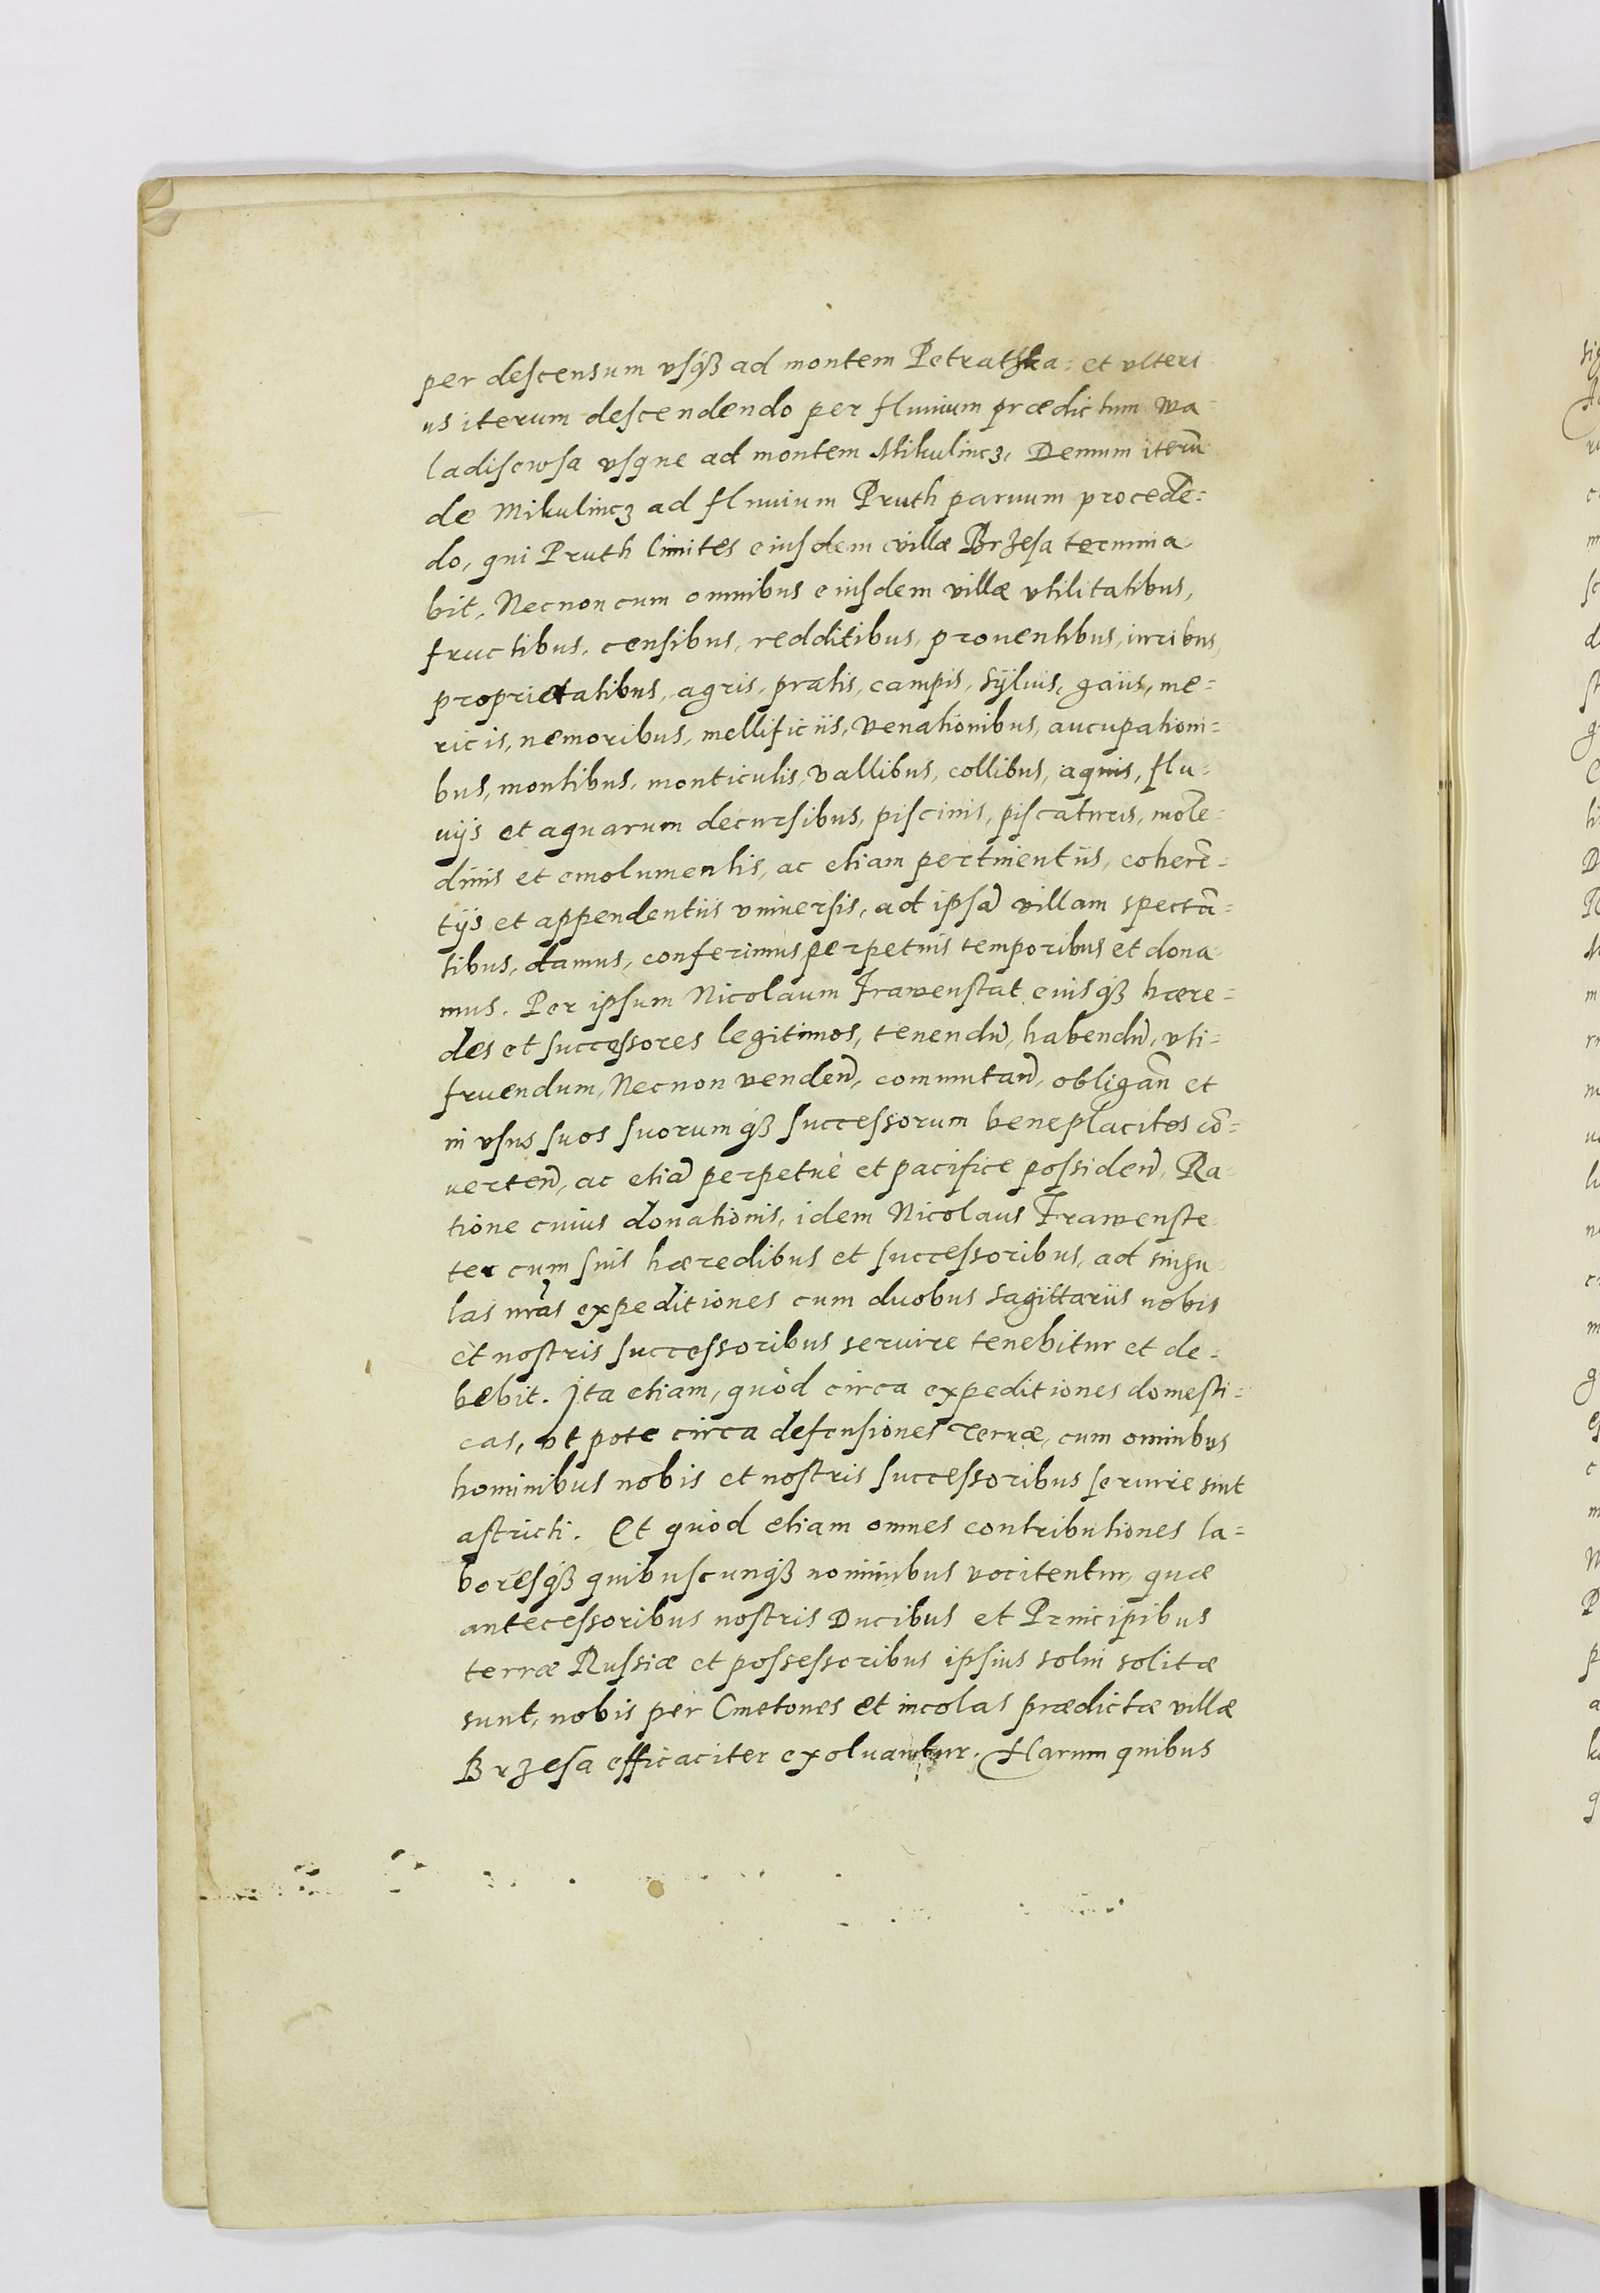 per descensum vsq₃ ad montem Petratska: et vlteri
us iterum descendendo per fluuium prædictum Wa
ladiscwsa vsque ad montem Mikulincz, Demum iterũ
de Mikulincz ad fluuium Pruth paruum procedẽ=
do, qui Pruth limites eiusdem villæ Brzesa termina
bit, Necnon cum omnibus eiusdem villæ vtilitatibus,
fructibus, censibus, redditibus, prouentibus, iuribus,
proprietatibus, agris, pratis, campis, syluis, gaiis, me=
ricis, nemoribus, mellificiis, venationibus, aucupationi=
bus, montibus, monticulis, vallibus, collibus, aquis, flu=
uijs et aquarum decursibus, piscinis, piscaturis, molẽ=
dinis et emolumentis, ac etiam pertinentiis, coherẽ=
tijs et appendentiis vniuersis, ad ipsã villam spectã=
tibus, damus, conferimus perpetuis temporibus et dona
mus. Per ipsum Nicolaum Frawenstat eiusq₃ hære=
des et successores legitimos, tenendũ, habendũ, vti=
fruendum, Necnon vendeñ, commutañ, obligañ et
in vsus suos suorumq₃ successorum beneplacitos cõ=
uerteñ, ac etiã perpetuè et pacifice possideñ, Ra
tione cuius donationis, idem Nicolaus Frawenste
ter cum suis hæredibus et successoribus, ad singu
las nr̃as expeditiones cum duobus sagittariis nobis
et nostris successoribus seruire tenebitur et de=
bebit. Ita etiam, quòd circa expeditiones domesti=
cas, vt pote circa defensiones Terræ, cum omnibus
hominibus nobis et nostris successoribus seruire sint
astricti. Et quòd etiam omnes contributiones la=
boresq₃ quibuscunq₃ nominibus vocitentur, quæ
antecessoribus nostris Ducibus et Principibus
terræ Russiæ et possessoribus ipsius solui solitæ
sunt, nobis per Cmetones et incolas prædictæ villæ
Brzesa efficaciter exoluantur. Harum quibus